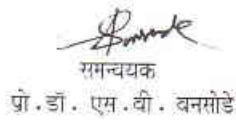 समन्वयक
प्रो.डॉ. एस.वी. वनसोडे